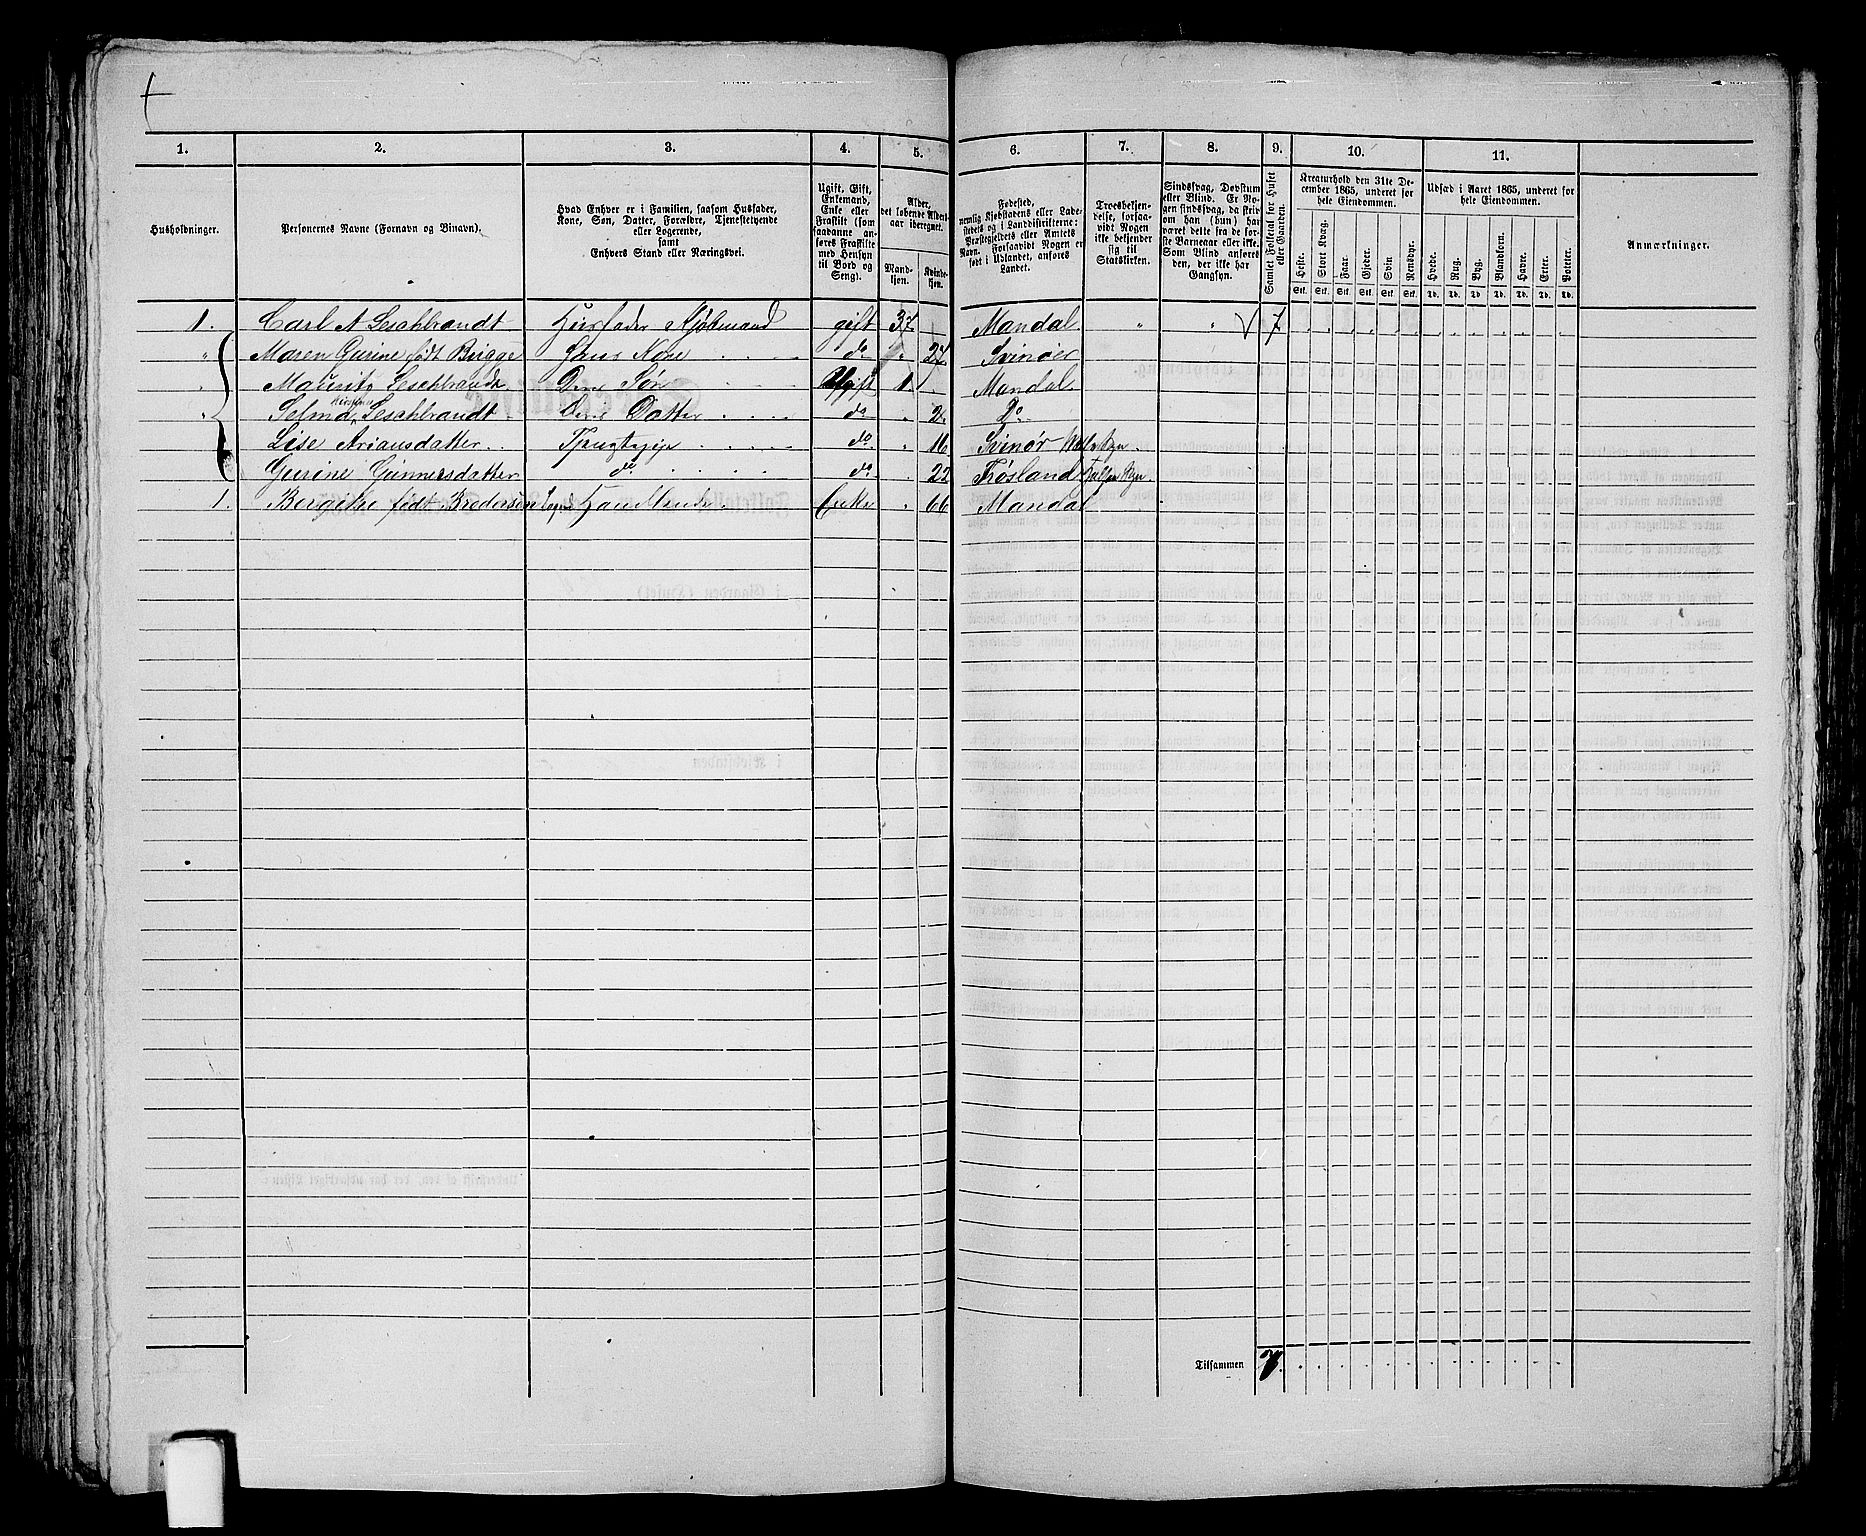 1. 2. 3. 4. 5. 6. 7. 8. 9. 10. 11.
Husholdninger.
Personernes Navne (Fornavn og Binavn).
Hvad Enhver er i Familien, saasom Husfader,
Kone, Søn, Datter, Forældre, Tjenestetyende
eller Logerende,
samt
Enhvers Stand eller Næringsvei.
Ugift, Gift,
Enkemand,
Enke eller
Fraskilt (som
saadanne an-
føres Fraskilte
med Hensyn
til Bord og
Seng).
Alder,
det løbende Alders-
aar iberegnet.
Mand-
kjøn.
Kvinde-
kjøn.
Fødested,
nemlig Kjøbstadens eller Lade-
stedets og i Landdistrikterne:
Præstegjeldets eller Amtets
Navn. Forsaavidt Nogen er
født i Udlandet, anføres
Landet.
Troesbekjen-
delse, forsaa-
vidt Nogen
ikke bekjender
sig til
Statskirken.
Sindssvag, Døvstum
eller Blind. Er No-
gen sindssvag, da skriv
om han (hun) har
været dette fra de før-
ste Barneaar eller ikke.
Som Blind anføres
den, der ikke har
Gangsyn.
Samlet Folketal for Huset
eller Gaarden.
Kreaturhold den 31te De-
cember 1865, underet for
hele Eiendommen.
Heste. Stort Kvæg. Faar. Gjeder. Svin. Rensdyr.
Stk. Stk. Stk. Stk. Stk. Stk.
Udsæd i Aaret 1865, underet for
hele Eiendommen.
Hvede. Rug. Byg. Blandkorn. Havre. Erter. Poteter.
Td. Td. Td. Td. Td. Td. Td.
Anmærkninger.
1. Carl A Leschbrandt Husfader Kjøbmand gift 37 Mandal " " 7
" Maren Gurine født Brigge Hans Kone do " 27 Svinøer
" Mauritz Leschbrandt Deres Søn Ugift 1. Mandal
" Selma Leschbrandt Deres Datter do " 2. Do
Lise Ariansdatter Tjenestepige do " 16 Svinør
Gurine Gunnersdatter do do " 22 Frøsland
1. født Brodersen Handlende Enke " 66 Mandal
Tilsammen 7.